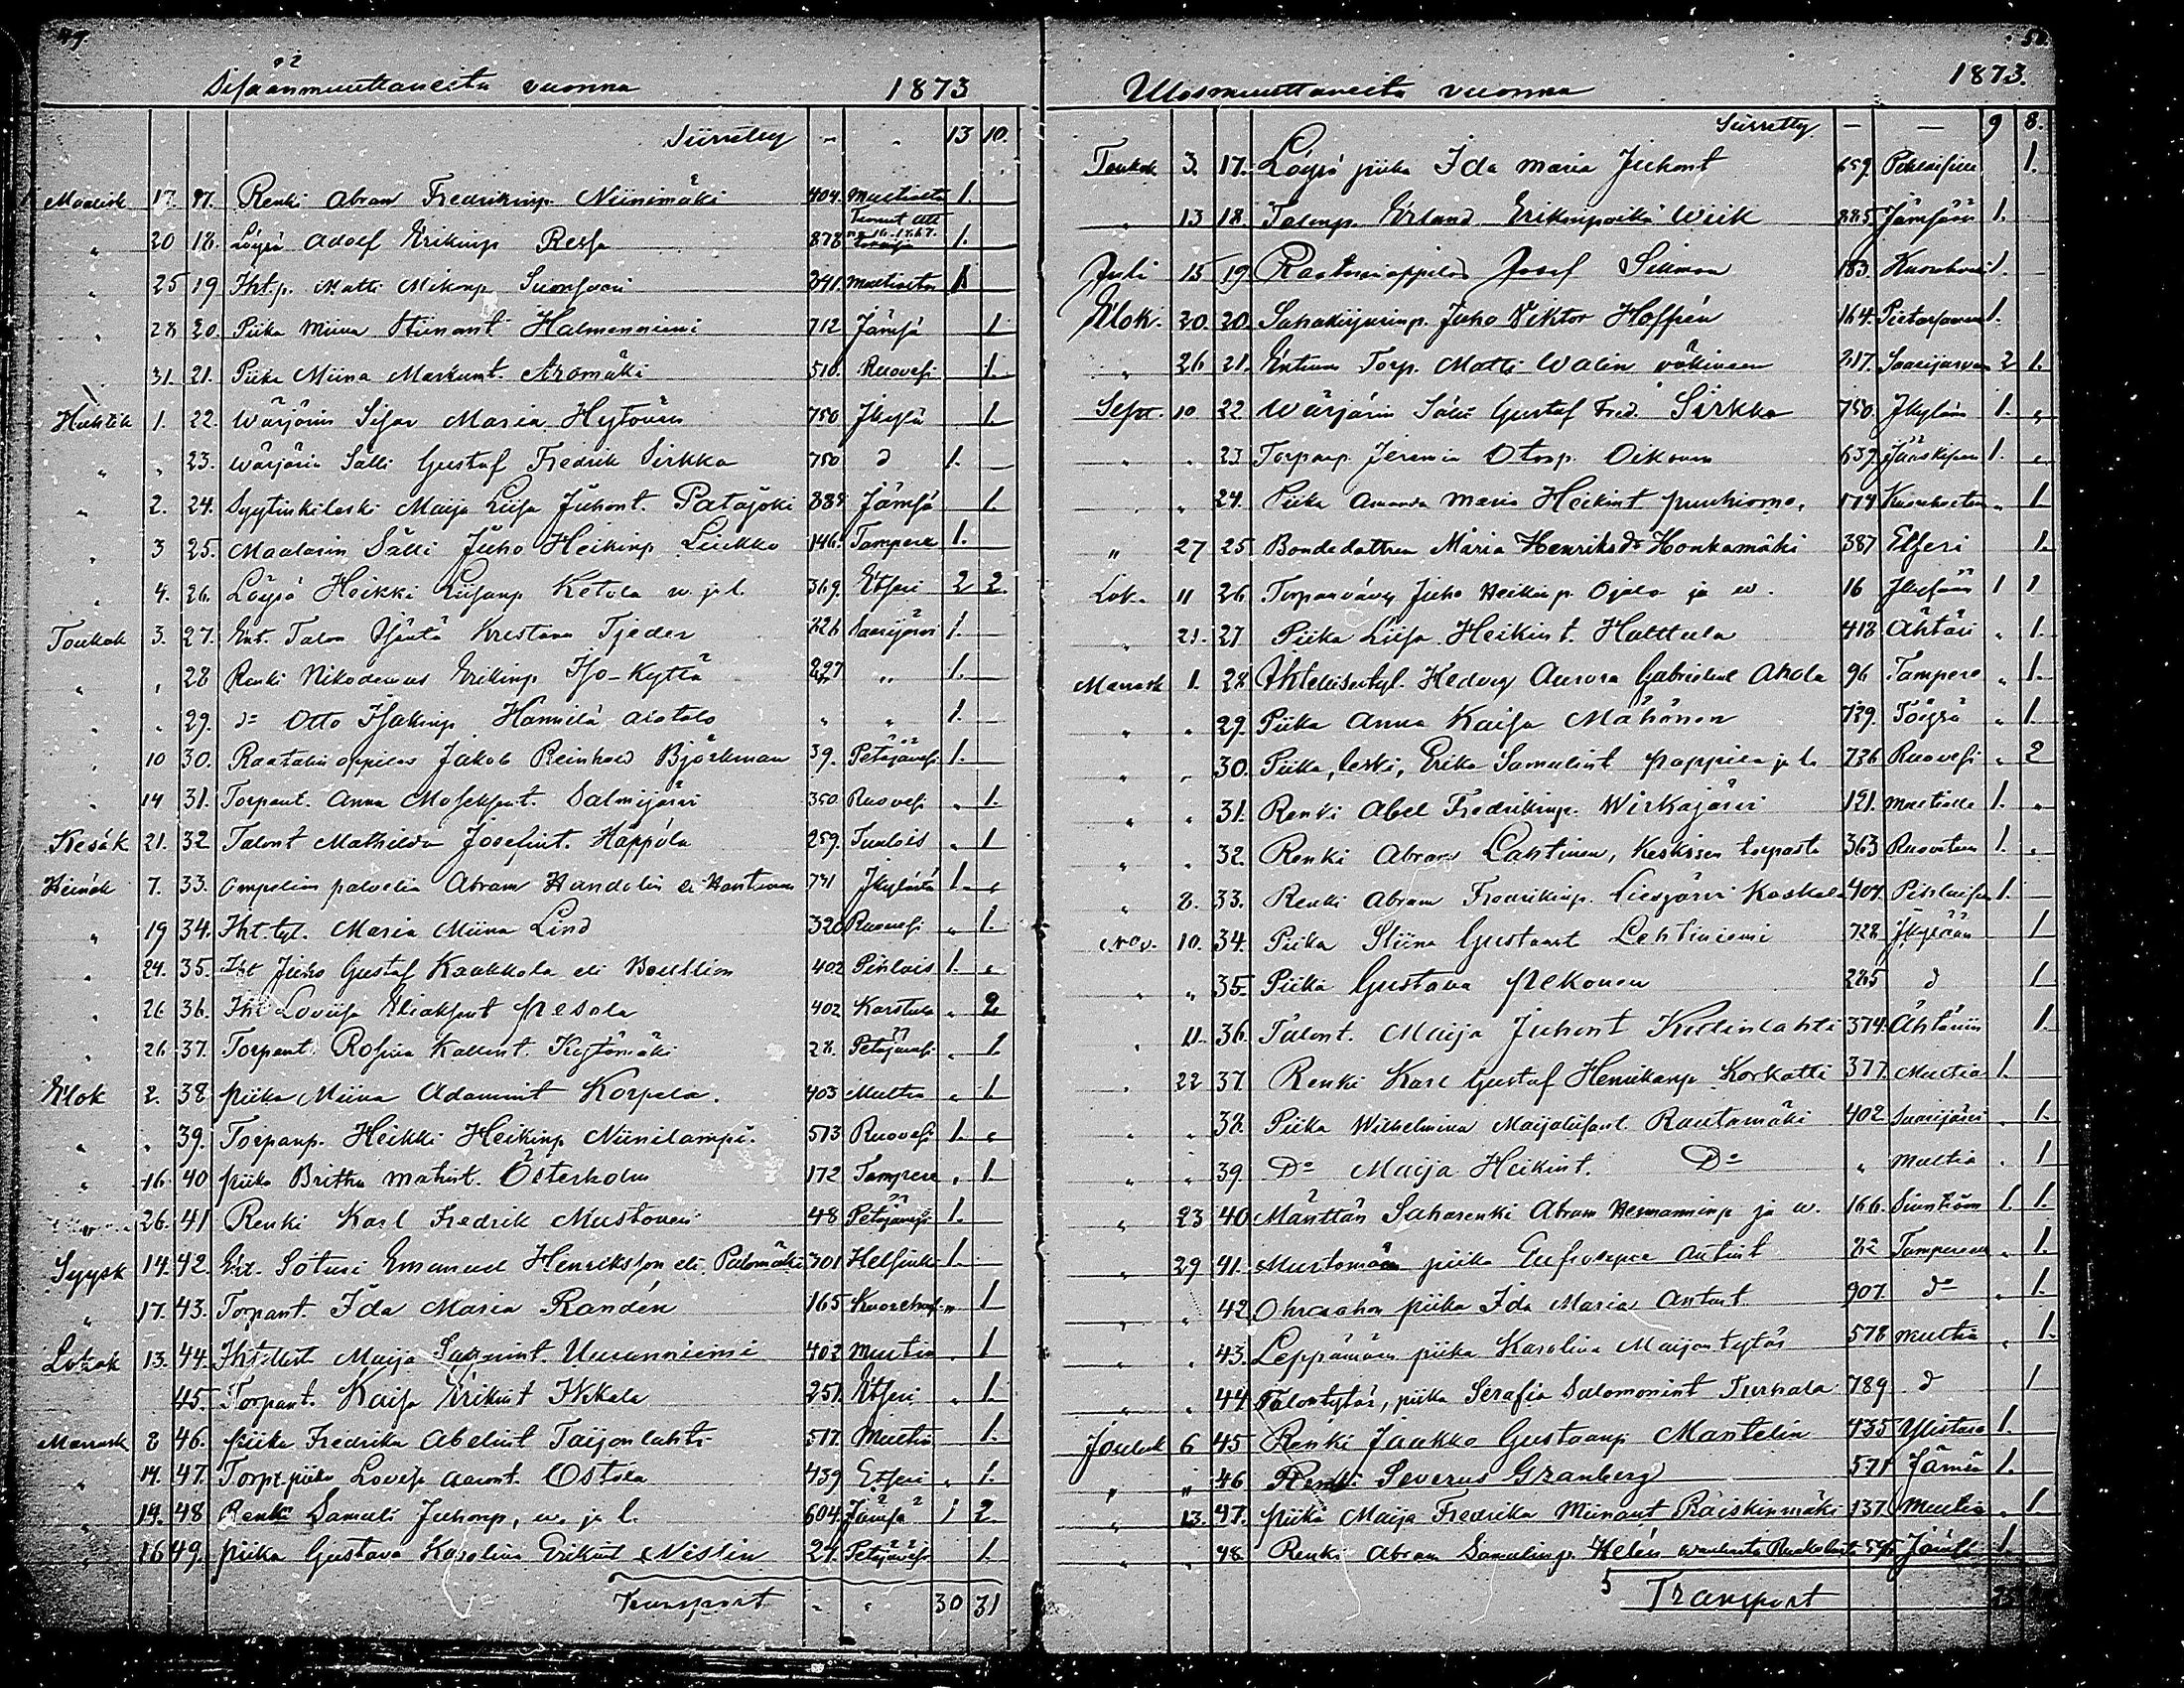 49.
Sisäänmuuttaneita vuonna 1873
Siirretty - - 13 10.
Maalisk 17. 17. Renki Abram Fredrikinp. Niinimäki 404. Multialta 1.
" 20 18. Löysä Adolf Erikinp 878 1.
" 25 19 Iht.p. Matti Mikonp 241. Multialta 1
" 28 20. Piika Miina Stiinant Halmenniemi 712 Jämsä 1
" 31. 21. Piika Miina Markunt. Aromäki 510. Ruovesi 1.
Huhtik 1. 22. Wärjärin Sisar Maria Hytönen 750 Jkylä 1.
" " 23. Wärjärin Sälli Gustaf Fredrik Sirkka 750 d 1.
" 2. 24. Syytinkileski Maija Liisa Juhont. Patajoki 888 Jämsä 1
" 3 25. Maalarin Sälli Juho Heikinp Liukko 146. Tampere 1.
" 4. 26. Löysä Heikki Liisanp Ketola w. ja l. 369. Etseri 2 2.
Toukok 3. 27. Ent. Talon Isäntä Krestian Tjeder 226 Saarijärvi 1.
" " 28 Renki Nikodemus Erikinp Iso-Kytta 297 " 1.
" " 29. d:o Otto Isakinp Hannila " " 1.
" 10 30. Raatalin oppilas Jakob Reinhold Björkman 39. Petäjävesi 1.
" 14 31. Torpant. Anna Moseksent. Salmijärvi 350. Ruovesi " 1.
Kesäk 21. 32 Talont Mathilda Josefint. Häppölä 259. Tuulois " 1
Heinäk 7. 33. Ompelian palvelia Abram Handolin eli Hantinen 741 Jkylästä 1. "
" 19 34. Iht.tyt. Maria Miina Lind 320 Ruovesi " 1.
" 24. 35. Iht Juho Gustaf Kaukkola eli Boullion 402 Pihlais 1. "
" 26 36. Iht Loviisa Eliaksent Pesola 402 Karstula " 2
" 26 37. Torpant. Rosina Kallent. Kytömäki 28. Petäjävesi " 1.
Elok 2. 38 piika Miina Adamint Korpela. 403 Multia " 1.
" " 39. Torpanp. Heikki Heikinp Niinilampi. 573 Ruovesi 1. "
" 16. 40 piika Britha Matint. Österholm 172 Tampere " 1.
26. 41 Renki Karl Fredrik Mustonen 48 Petäjävesi 1.
Syysk 14. 42. Ent. Sotusi Emanuel Henriksson eli Palomäki 301 Helsinki 1.
" 17. 43. Torpant. Ida Maria Randén 165 " 1
Lokak 13. 44. Maija Uusanniemi 402 Multia " 1
45. Torpant. Kaisa Erikint Kokala 251. Etseri " 1.
Marrask 8 46. piika Fredrika Abelint Taijonlahti 517. Multia 1.
" 14. 47. Torpt piika Lovisa Aaront. Ostola 439 Etseri " 1.
" 14. 48 Renki Samuli Juhonp, w. ja l. 604. Jämsä 1 2.
" 16 49. piika Gustava Karolina Erikint Nisslin 24. Petäjävesi 1.
Transport - - 30 31
50.
Ulosmuuttaneita vuonna 1873.
Siirretty - - 9 8.
Toukok 3. 17. Löysä piika Ida Maria Juhont 659. 1.
" 13 18. Talonp. Erland Erikinpoika Wiik 885. Jämsään 1.
Juli 15 19 Raatarinoppilas Josef Sillman 183. 1.
Elok. 20. 20 Sahakirjurinp. Juho Viktor Hoffrén 164. Pietarsaaren 1.
" 26 21. Entinen Torp. Matti Walin väkineen 217. Saarijärven 2 1.
Sept. 10 22 Wärjärin Sälli Gustaf Fred. Sirkka 750. Jkylän 1. "
" " 23 Torpanp. Jeremia Otonp. Oikonen 637. Jääskisen 1. "
" " 24. Piika Amanda Maria Heikint 574 " 1.
" 27 25 Bondedottren Maria Henriksdr Honkamäki 387 Etseri 1.
Lok. 11 26 Torpanvävy Juho Heikinp Ojala ja w. 16 1 1
" 21. 27 Piika Liisa Heikint. Halttula 418 Ähtäri " 1.
Marrask 1. 28 Hedvig Aurora Gabrielint Ahola 96 Tampere " 1.
" " 29. Piika Anna Kaisa Mähönen 729. Töysä " 1.
" " 30. Piika, leski, Erika Samulint Pappila ja l. 736 Ruovesi " 2
" " 31. Renki Abel Fredrikinp. Wirkajärvi 121. Multialle 1. "
" " 32. Renki Abram Lahtinen, Keskisen torpasta 363 Ruoveteen 1. "
" 8. 33. Renki Abram Fredrikinp. Liesjärvi Koskela 404. 1.
Nov. 10. 34. Piika Stiina Gustaant Lehtiniemi 728 Jkylään 1
" " 35. Piika Gustava Pekonen 285 d 1
" 11. 36. Talont. Maija Juhont Kurtinlahti 374. Ähtäriin 1.
" 22 37. Renki Karl Gustaf Henrikanp Korkatti 377. Multia 1.
" " 38. Piika Wilhelmina Maijaliisant. Rautamäki 402 Saarijärvi " 1.
" " 39. D:o Maija Heikint. D:o " Multia " 1
" 23 40. Mänttän Saharenki Abram Hermanninp ja w. 166. 1. 1.
" 29 41. Mustomään piika Eufrosyne Antint 82 Tampereen " 1.
" " 42. Ohraahon piika Ida Maria Antint 907. d:o " 1.
" " 43. Leppämäen piika Karolina Maijantytär 578 Multia " 1.
" " 44. Talontytär, piika Serafia Salomonint Turhala 789 d 1
Jouluk 6 45 Renki Jaakko Gustaanp Mantelin 435 Ylistaro 1.
" " 46 Renki Severus Granberg 571 Jämsä 1.
" 13. 47. piika Maija Fredrika Miinant Räiskinmäki 137. Multia " 1.
" " 48. Renki Abram Samulinp. Helén 1.
5 Transport